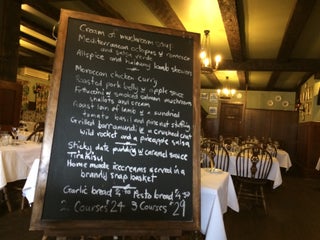 Cream of mushroom soup
Mediterranean octopus w romesco
and salsa verde
Allspice and honey lamb skewers
Moroccan chicken curry
Roasted pork belly w apple spice
Fettucini w smoked salmon mushroom
shallots and cream
Roast loin of lamb w a sundried
tomato basil and pinenut stuffing
Grilled barramundi w a crushed chat
wild rocket and a pineapple salsa
Sticky date pudding w caramel sauce
Tiramisu
Home made icecreams served in a
brandy snap basket
Garlic bread Pesto bread
2 Courses $24 3 Courses $29